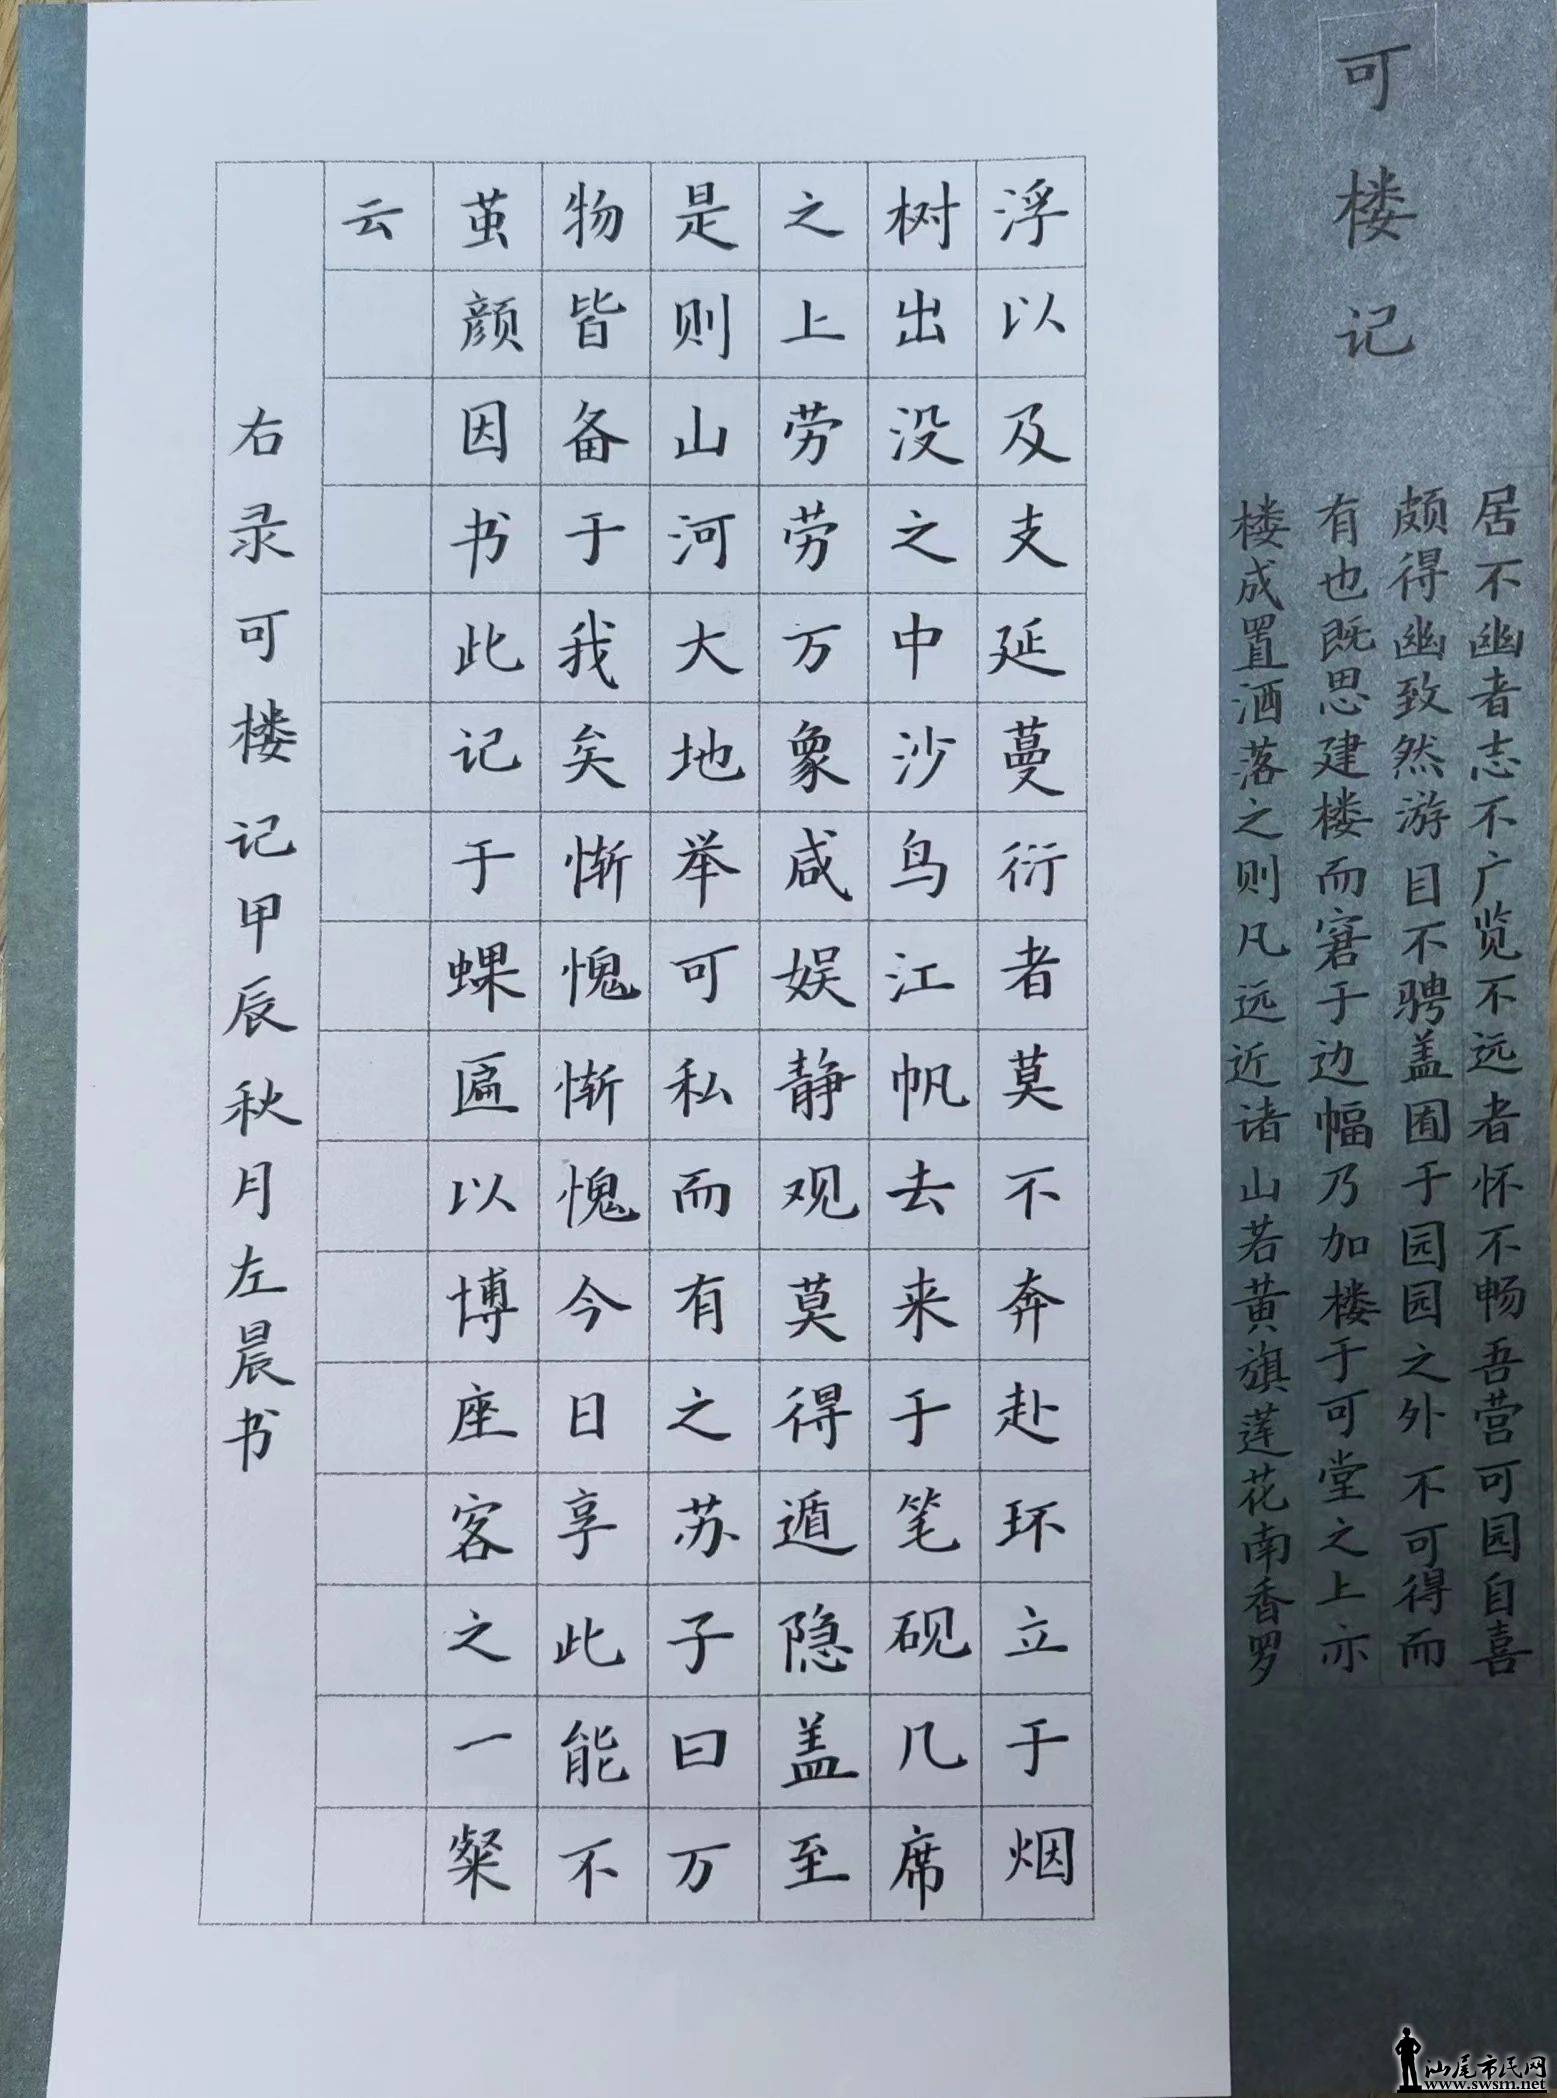 可楼记
居不幽者志不广览不远者怀不畅吾营可园自喜
颇得幽致然游目不骋盖囿于园园之外不可得而
有也既思建楼而窘于边幅乃加楼于可堂之上亦
楼成置酒落之则凡远近诸山若黄旗莲花南香罗
浮以及支延蔓衍者莫不奔赴环立于烟
树出没之中沙鸟江帆去来于笔砚几席
之上劳劳万象咸娱静观莫得遁隐盖至
是则山河大地举可私而有之苏子曰万
物皆备于我矣惭愧惭愧今日享此能不
茧颜因书此记于蜾匾以博座客之一粲
云
右录可楼记甲辰秋月左晨书
汕尾市民网
www.swsm.net